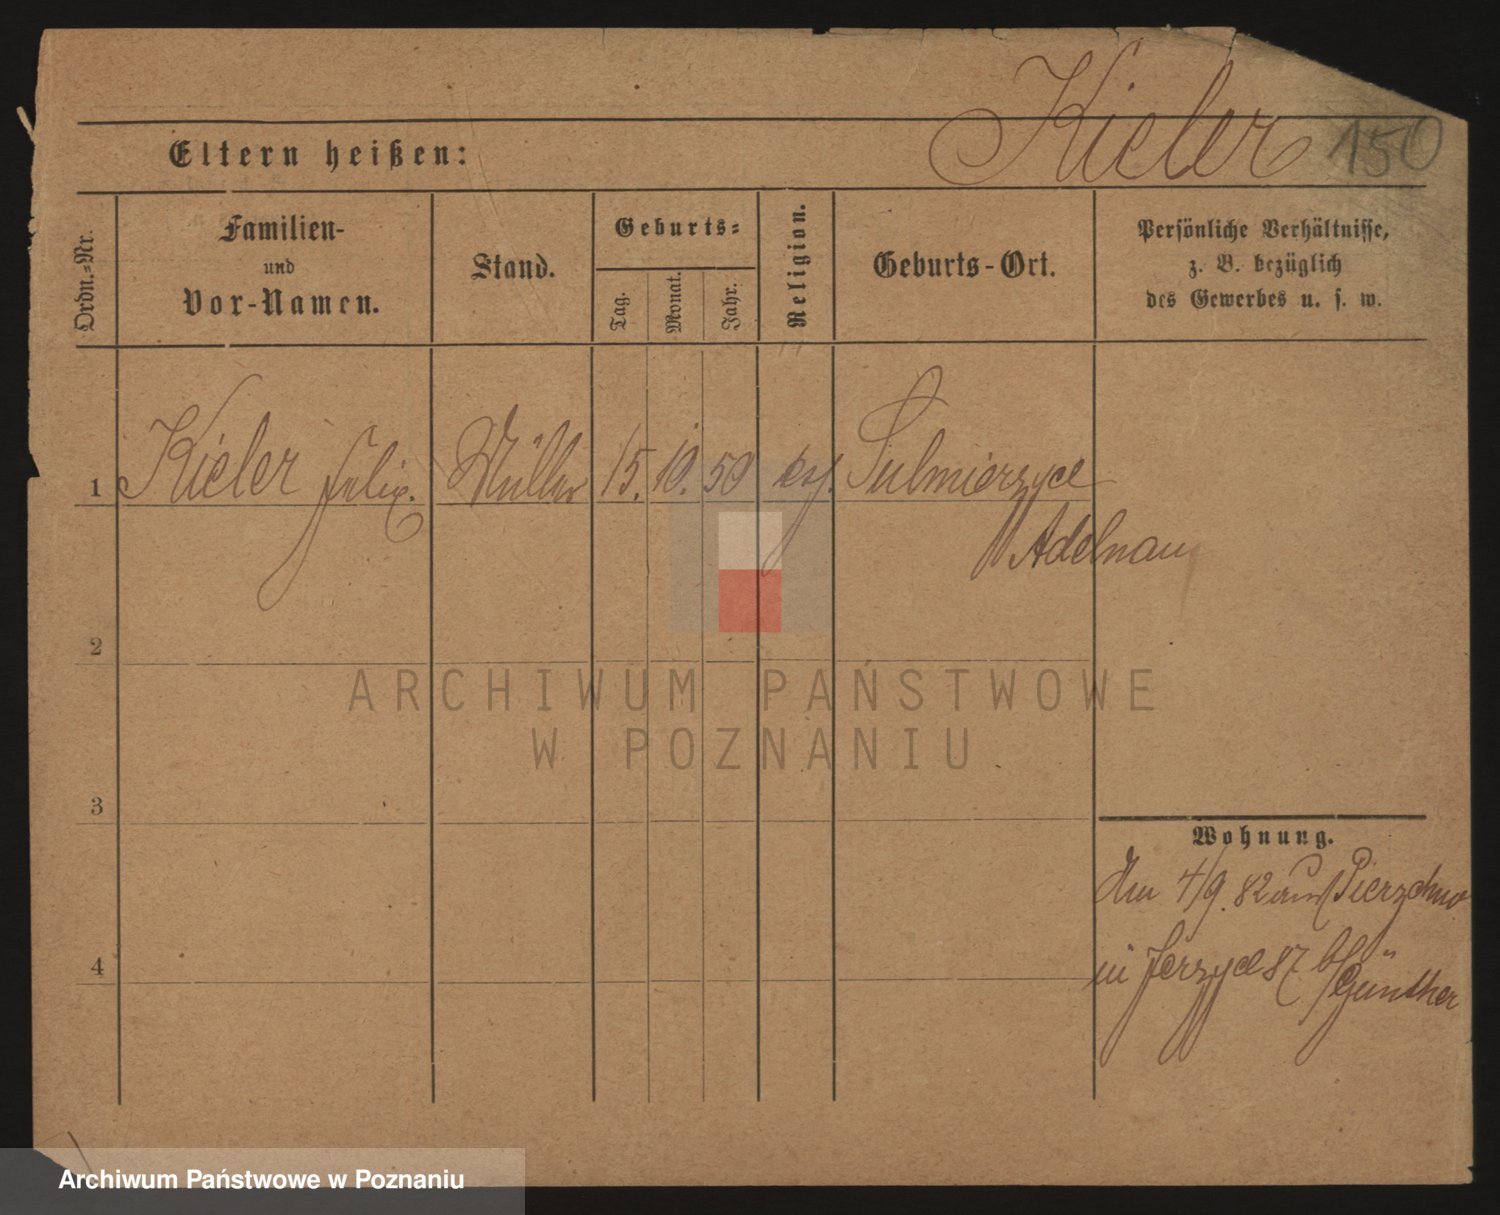 Kieler 150
Eltern heißen:
Ordn.=Nr.
Familien-
und
Vor-Namen.
Stand.
Geburts=
Tag.
Monat.
Jahr.
Religion.
Geburts-Ort.
Persönliche Verhältnisse,
z. B. bezüglich
des Gewerbes u. s. w.
1 Kieler Felix. Müller 15. 10. 50 Sulmierzyce
Adelnau
2
3
4
Wohnung.
Am 4/9. 82 aus Pierzchno
in Jerzyce 87 b/ Günther
ARCHIWUM PAŃSTWOWE
W POZNANIU
Archiwum Państwowe w Poznaniu